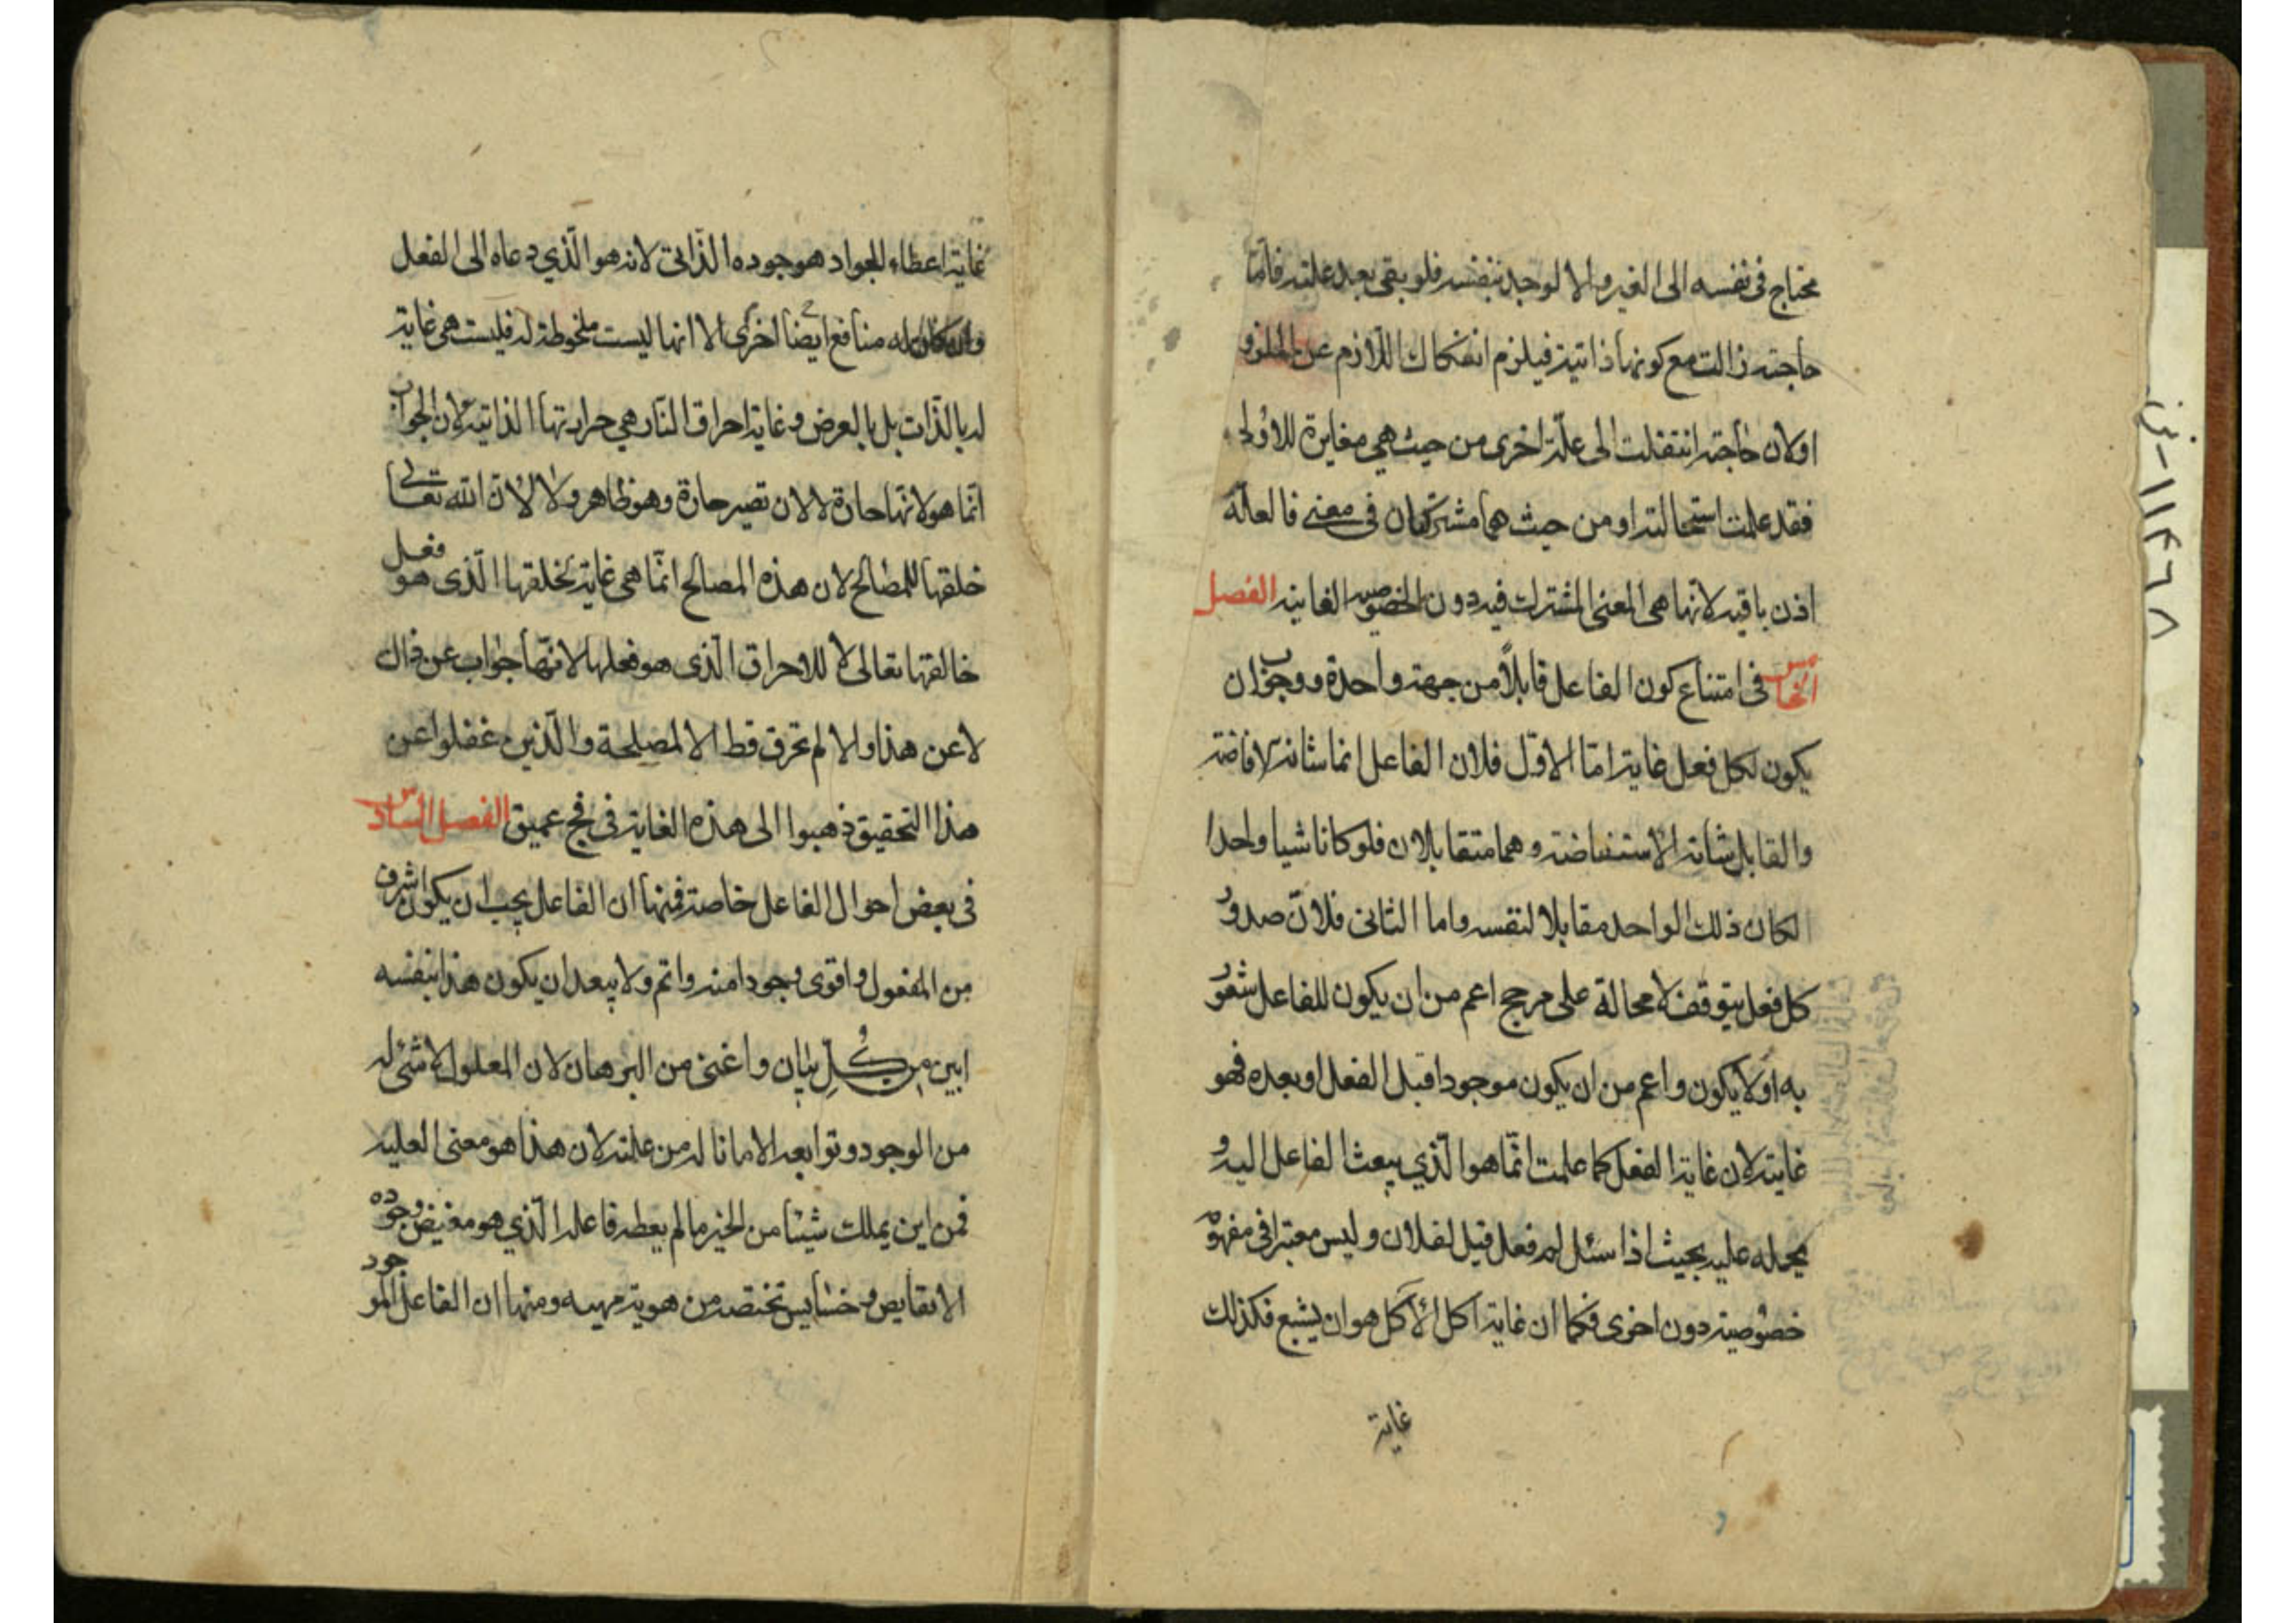 محتاج في نفسه الى الغير والا لوجد بنفسه فلو بقى بعد علته فاما
حاجته زالت مع كونها ذاتية فيلزم انفكاك اللازم عن الملزو
اولان حاجته انتقلت الى علة اخرى من حيث هي مغايرة للاولى
فقد علمت استحالته او من حيث هما مشتركتان في معنى فالعلة
اذن باقية لانها هى المعنى المشترك فيه دون الخصوصية الفانية الفصل
الخامس في امتناع كون الفاعل قابلاً من جهة واحدة ووجوب ان
يكون لكل فعل غاية اما الاول فلان الفاعل انما شانه الافاضة
والقابل شانه الاستفاضة وهما متقابلان فلو كانا شيا واحدا
لكان ذلك الواحد مقابلا لنفسه واما الثانى فلانّ صدور
كل فعل يتوقف لا محالة على مرجح اعم من ان يكون للفاعل شعور
به اولا يكون واعم من ان يكون موجودا قبل الفعل او بعده فهو
غايته لان غاية الفعل كما علمت انّما هو الّذي يبعث الفاعل اليه و
يحمله عليه بحيث اذا سئل لم فعل قيل لفلان وليس معتبرا في مفهومه
خصوصية دون اخرى فكما ان غاية اكل الأكل هو ان يشبع فكذلك
غاية
غاية اعطاء الجواد هو جوده الذّاتى لانه هو الّذي دعاه الى الفعل
وان كان له منافع ايضا اخرى الا انها ليست ملحوظة له فليست هى غاية
له بالذّات بل بالعرض وغاية احراق النّار هي حرارتها الذاتية لان الجواب
انّما هو لانّها حارة لا لان تصير حارة وهو ظاهر ولا لانّ الله تعالى
خلقها للمصالح لان هذه المصالح انّما هى غاية لخلقها الّذى هو فعل
خالقها تعالى لا للاحراق الّذى هو فعلها لانّها جواب عن ذاك
لا عن هذا والا لم تحرق قط الا لمصلحة والّذين غفلوا عن
هذا التحقيق ذهبوا الى هذه الغاية في فج عميق الفصل السادس
في بعض احوال الفاعل خاصة فمنها ان الفاعل يجب ان يكون اشرف
من المفعول واقوى وجودا منه واتم ولا يبعد ان يكون هذا بنفسه
ابين من كُلِّ بيان واغنى من البرهان لان المعلول لا شئ له
من الوجود وتوابعه الا ما ناله من علته لان هذا هو معنى العلية
فمن اين يملك شيئا من الخير ما لم يعطه فاعله الّذي هو مفيض وجوده
الا نقايص وخسايس تختصه من هوية مهيه ومنها ان الفاعل الموجود